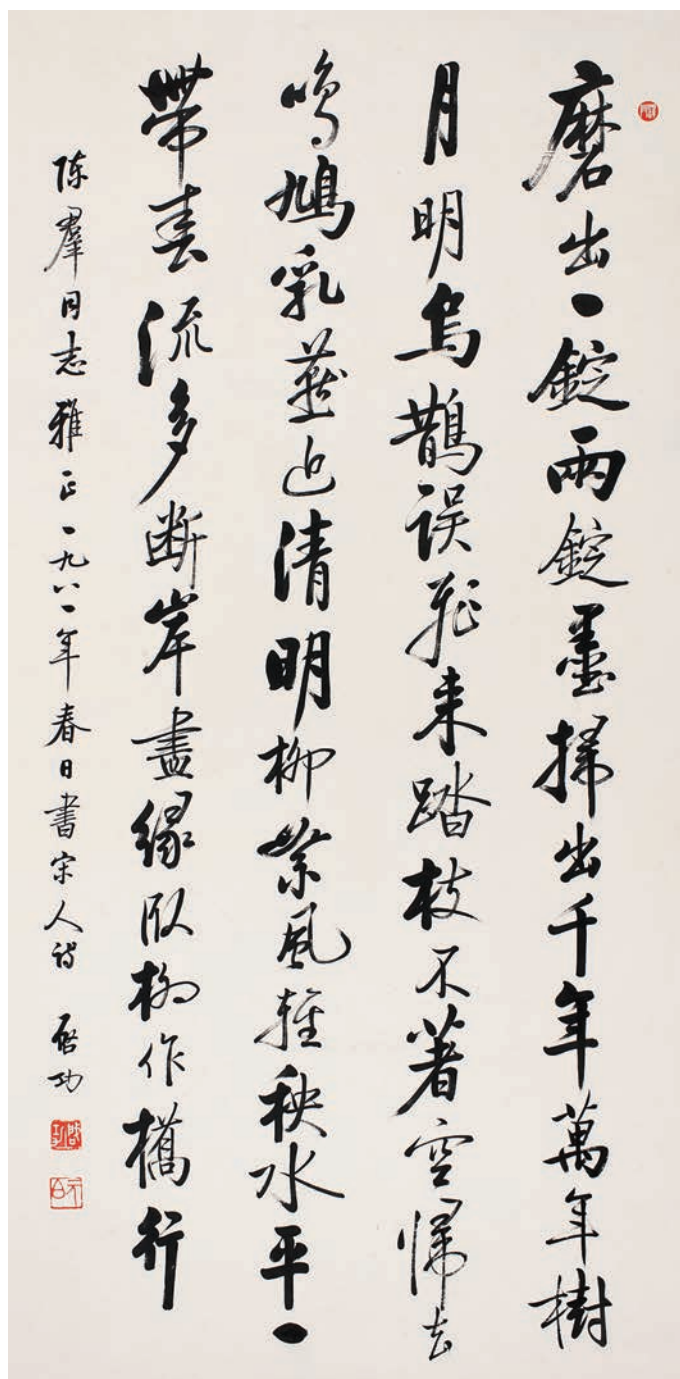 磨出一錠兩錠墨掃出千年萬年樹
月明烏鵲误飛来踏枝不著空歸去
鳴鳩乳燕近清明柳絮風輕秧水平一
帶春流多断岸盡緣臥柳作橋行
陈羣同志雅正一九八一年春日書宋人诗 启功